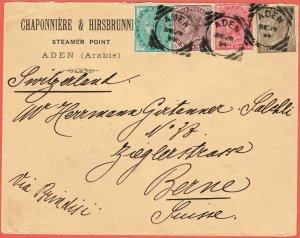 CHAPONNIÈRE & HIRSBRUNN
STEAMER POINT
ADEN (Arabie)
ADEN
ADEN
Switzerland
Herrmann Girtanner
N° 77
Zieglerstrasse
Berne
Suisse.
Via Brindisi